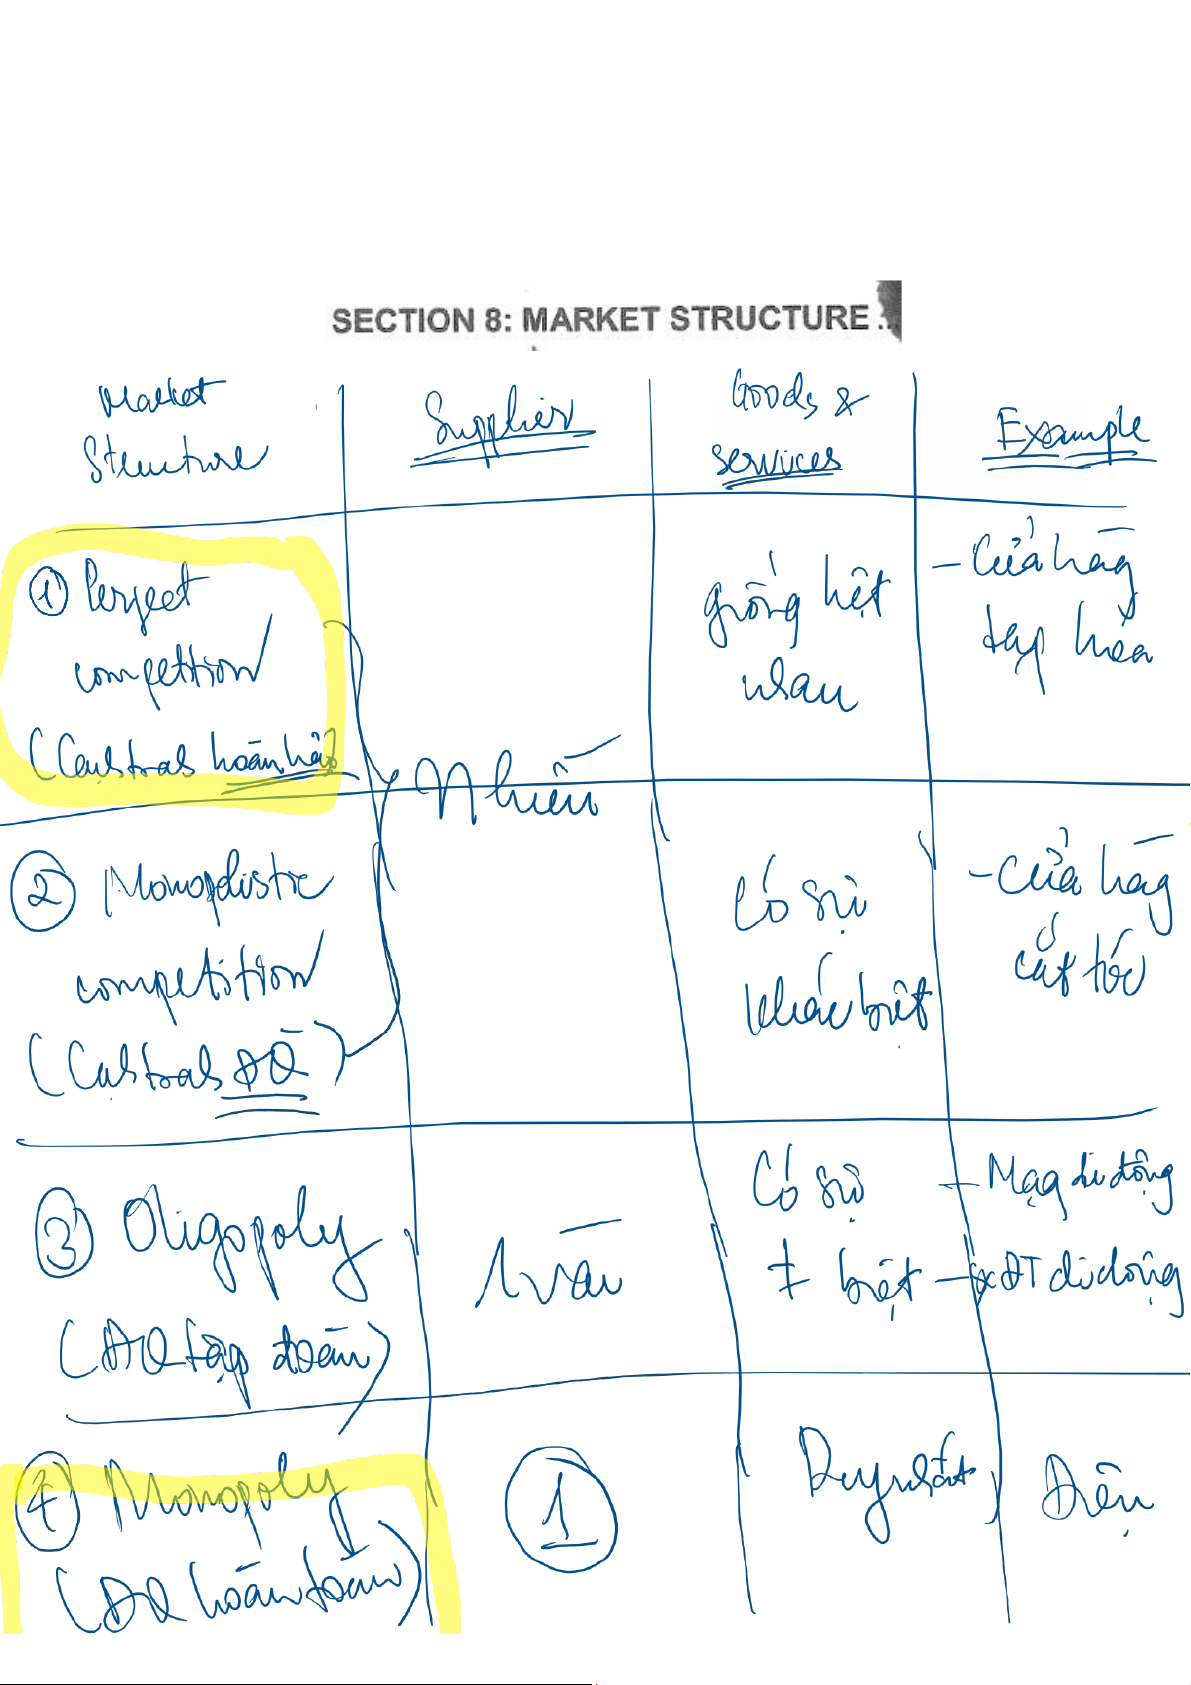 SECTION 8: MARKET STRUCTURE
Market
Structure
Supplier
Goods &
services
Example
① Perfect
competition
(Cạnh tranh hoàn hảo)
Nhiều
giống hệt
nhau
- Cửa hàng
tạp hóa
② Monopolistic
competition
(Cạnh tranh ĐQ)
Có sự
khác biệt
- Cửa hàng
cắt tóc
③ Oligopoly
(ĐQ tập đoàn)
1 vài
Có sự
≠ biệt
- Mạng di động
- ĐT di động
④ Monopoly
(ĐQ hoàn toàn)
1
Duy nhất
Điện